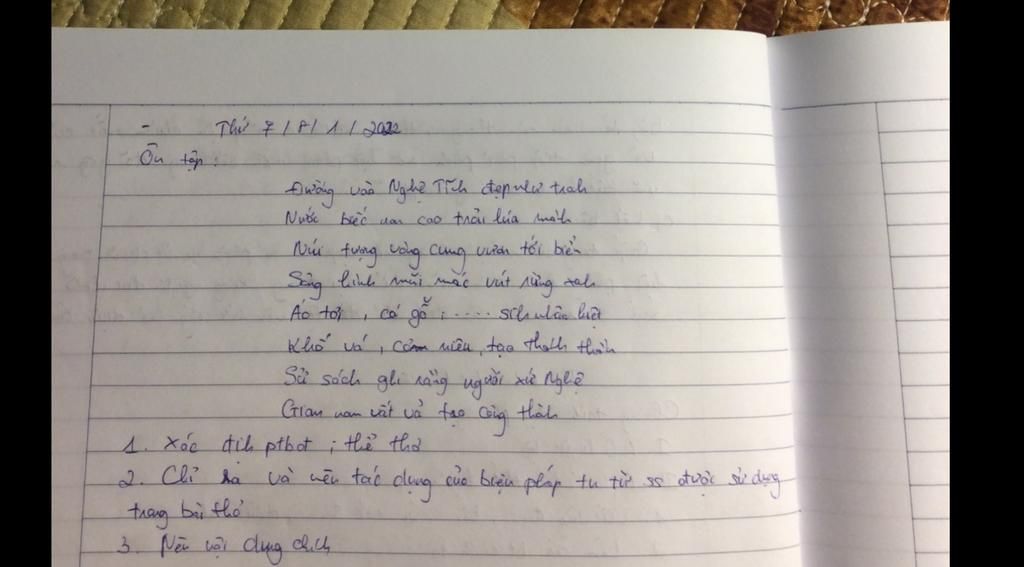 - Thứ 7 / 8 / 1 / 2022
Ôn tập :
Đường vào Nghệ Tĩnh đẹp như tranh
Nước biếc non cao trải lúa mành
Núi tượng vòng cung vươn tới biển
Sông hình mũi mác vút rừng xanh
Áo tơi, cá gỗ, ..... sinh nhân kiệt
Khố vá, cơm niêu, tạo thành
Sử sách ghi rằng người xứ Nghệ
Gian nan vất vả tạo công thành
1. Xác định ptbđt ; thể thơ
2. Chỉ ra và nêu tác dụng của biện pháp tu từ ss được sử dụng
trong bài thơ
3. Nêu nội dung chính